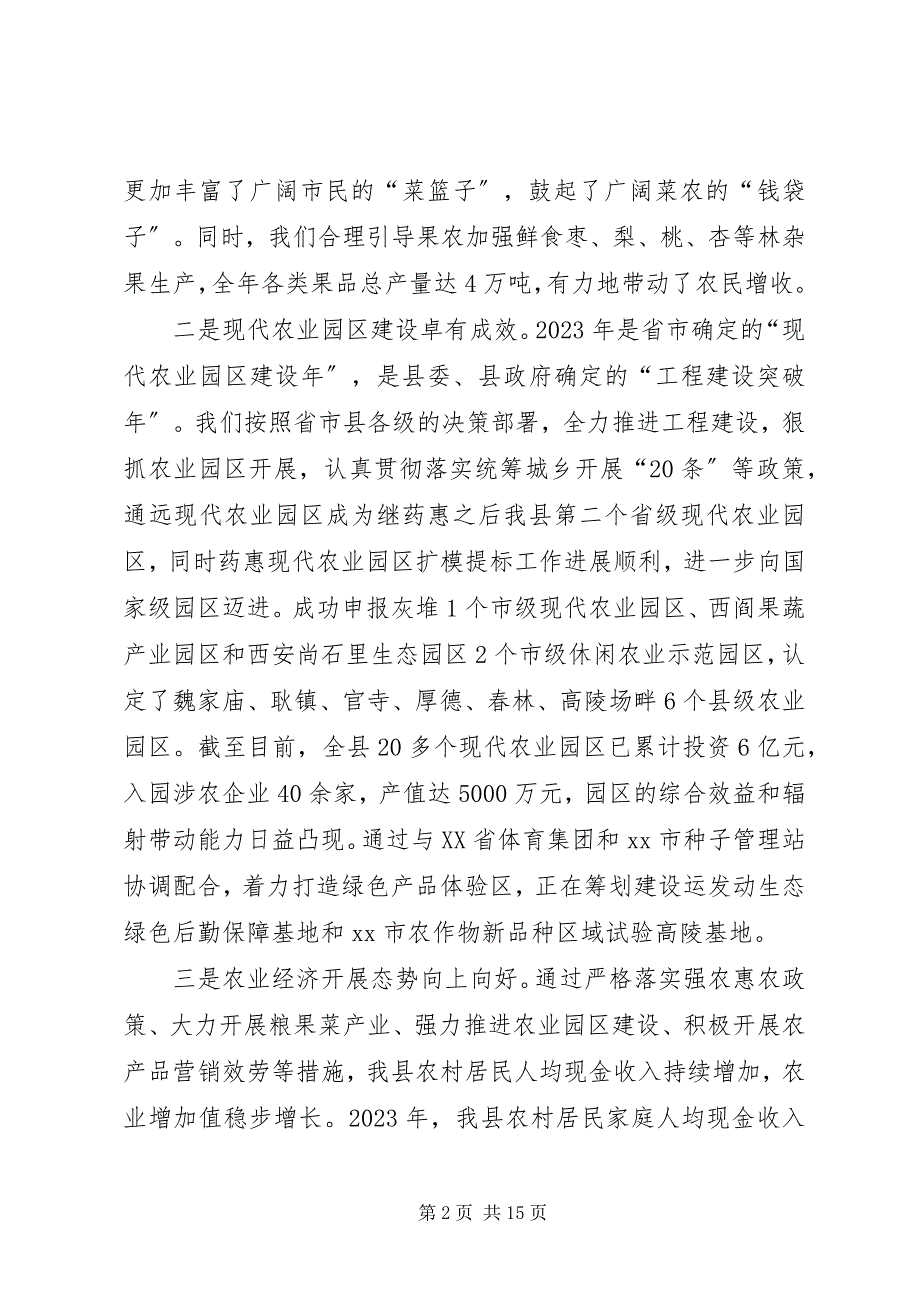 更加丰富了广阔市民的“菜篮子〞，鼓起了广阔菜农的“钱袋
子〞。同时，我们合理引导果农加强鲜食枣、梨、桃、杏等林杂
果生产，全年各类果品总产量达 4 万吨，有力地带动了农民增收。
二是现代农业园区建设卓有成效。2023 年是省市确定的“现
代农业园区建设年〞，是县委、县政府确定的“工程建设突破
年〞。我们按照省市县各级的决策部署，全力推进工程建设，狠
抓农业园区开展，认真贯彻落实统筹城乡开展“20 条〞等政策，
通远现代农业园区成为继药惠之后我县第二个省级现代农业园
区，同时药惠现代农业园区扩模提标工作进展顺利，进一步向国
家级园区迈进。成功申报灰堆 1 个市级现代农业园区、西阎果蔬
产业园区和西安尚石里生态园区 2 个市级休闲农业示范园区，认
定了魏家庙、耿镇、官寺、厚德、春林、高陵场畔 6 个县级农业
园区。截至目前，全县 20 多个现代农业园区已累计投资 6 亿元，
入园涉农企业 40 余家，产值达 5000 万元，园区的综合效益和辐
射带动能力日益凸现。通过与 XX 省体育集团和 xx 市种子管理站
协调配合，着力打造绿色产品体验区，正在筹划建设运发动生态
绿色后勤保障基地和 xx 市农作物新品种区域试验高陵基地。
三是农业经济开展态势向上向好。通过严格落实强农惠农政
策、大力开展粮果菜产业、强力推进农业园区建设、积极开展农
产品营销效劳等措施，我县农村居民人均现金收入持续增加，农
业增加值稳步增长。2023 年，我县农村居民家庭人均现金收入
第 2 页 共 15 页